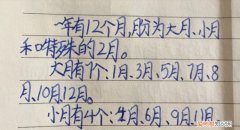 一年有12个月,月份为大月、小月
和特殊的2月。
大月有7个:1月、3月、5月、7月、8
月、10月、12月。
小月有4个:4月、6月、9月、11月